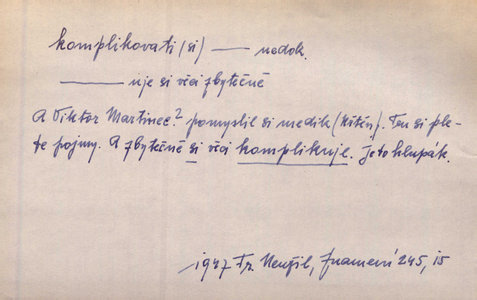 komplikovati (si) — nedok.
— uje si věci zbytečně
A Viktor Martinec? pomyslil si medik (Kitén). Ten si ple-
te pojmy. A zbytečně si věci komplikuje. Je to hlupák.
1947 Fr. Neužil, Znamení 245, 15